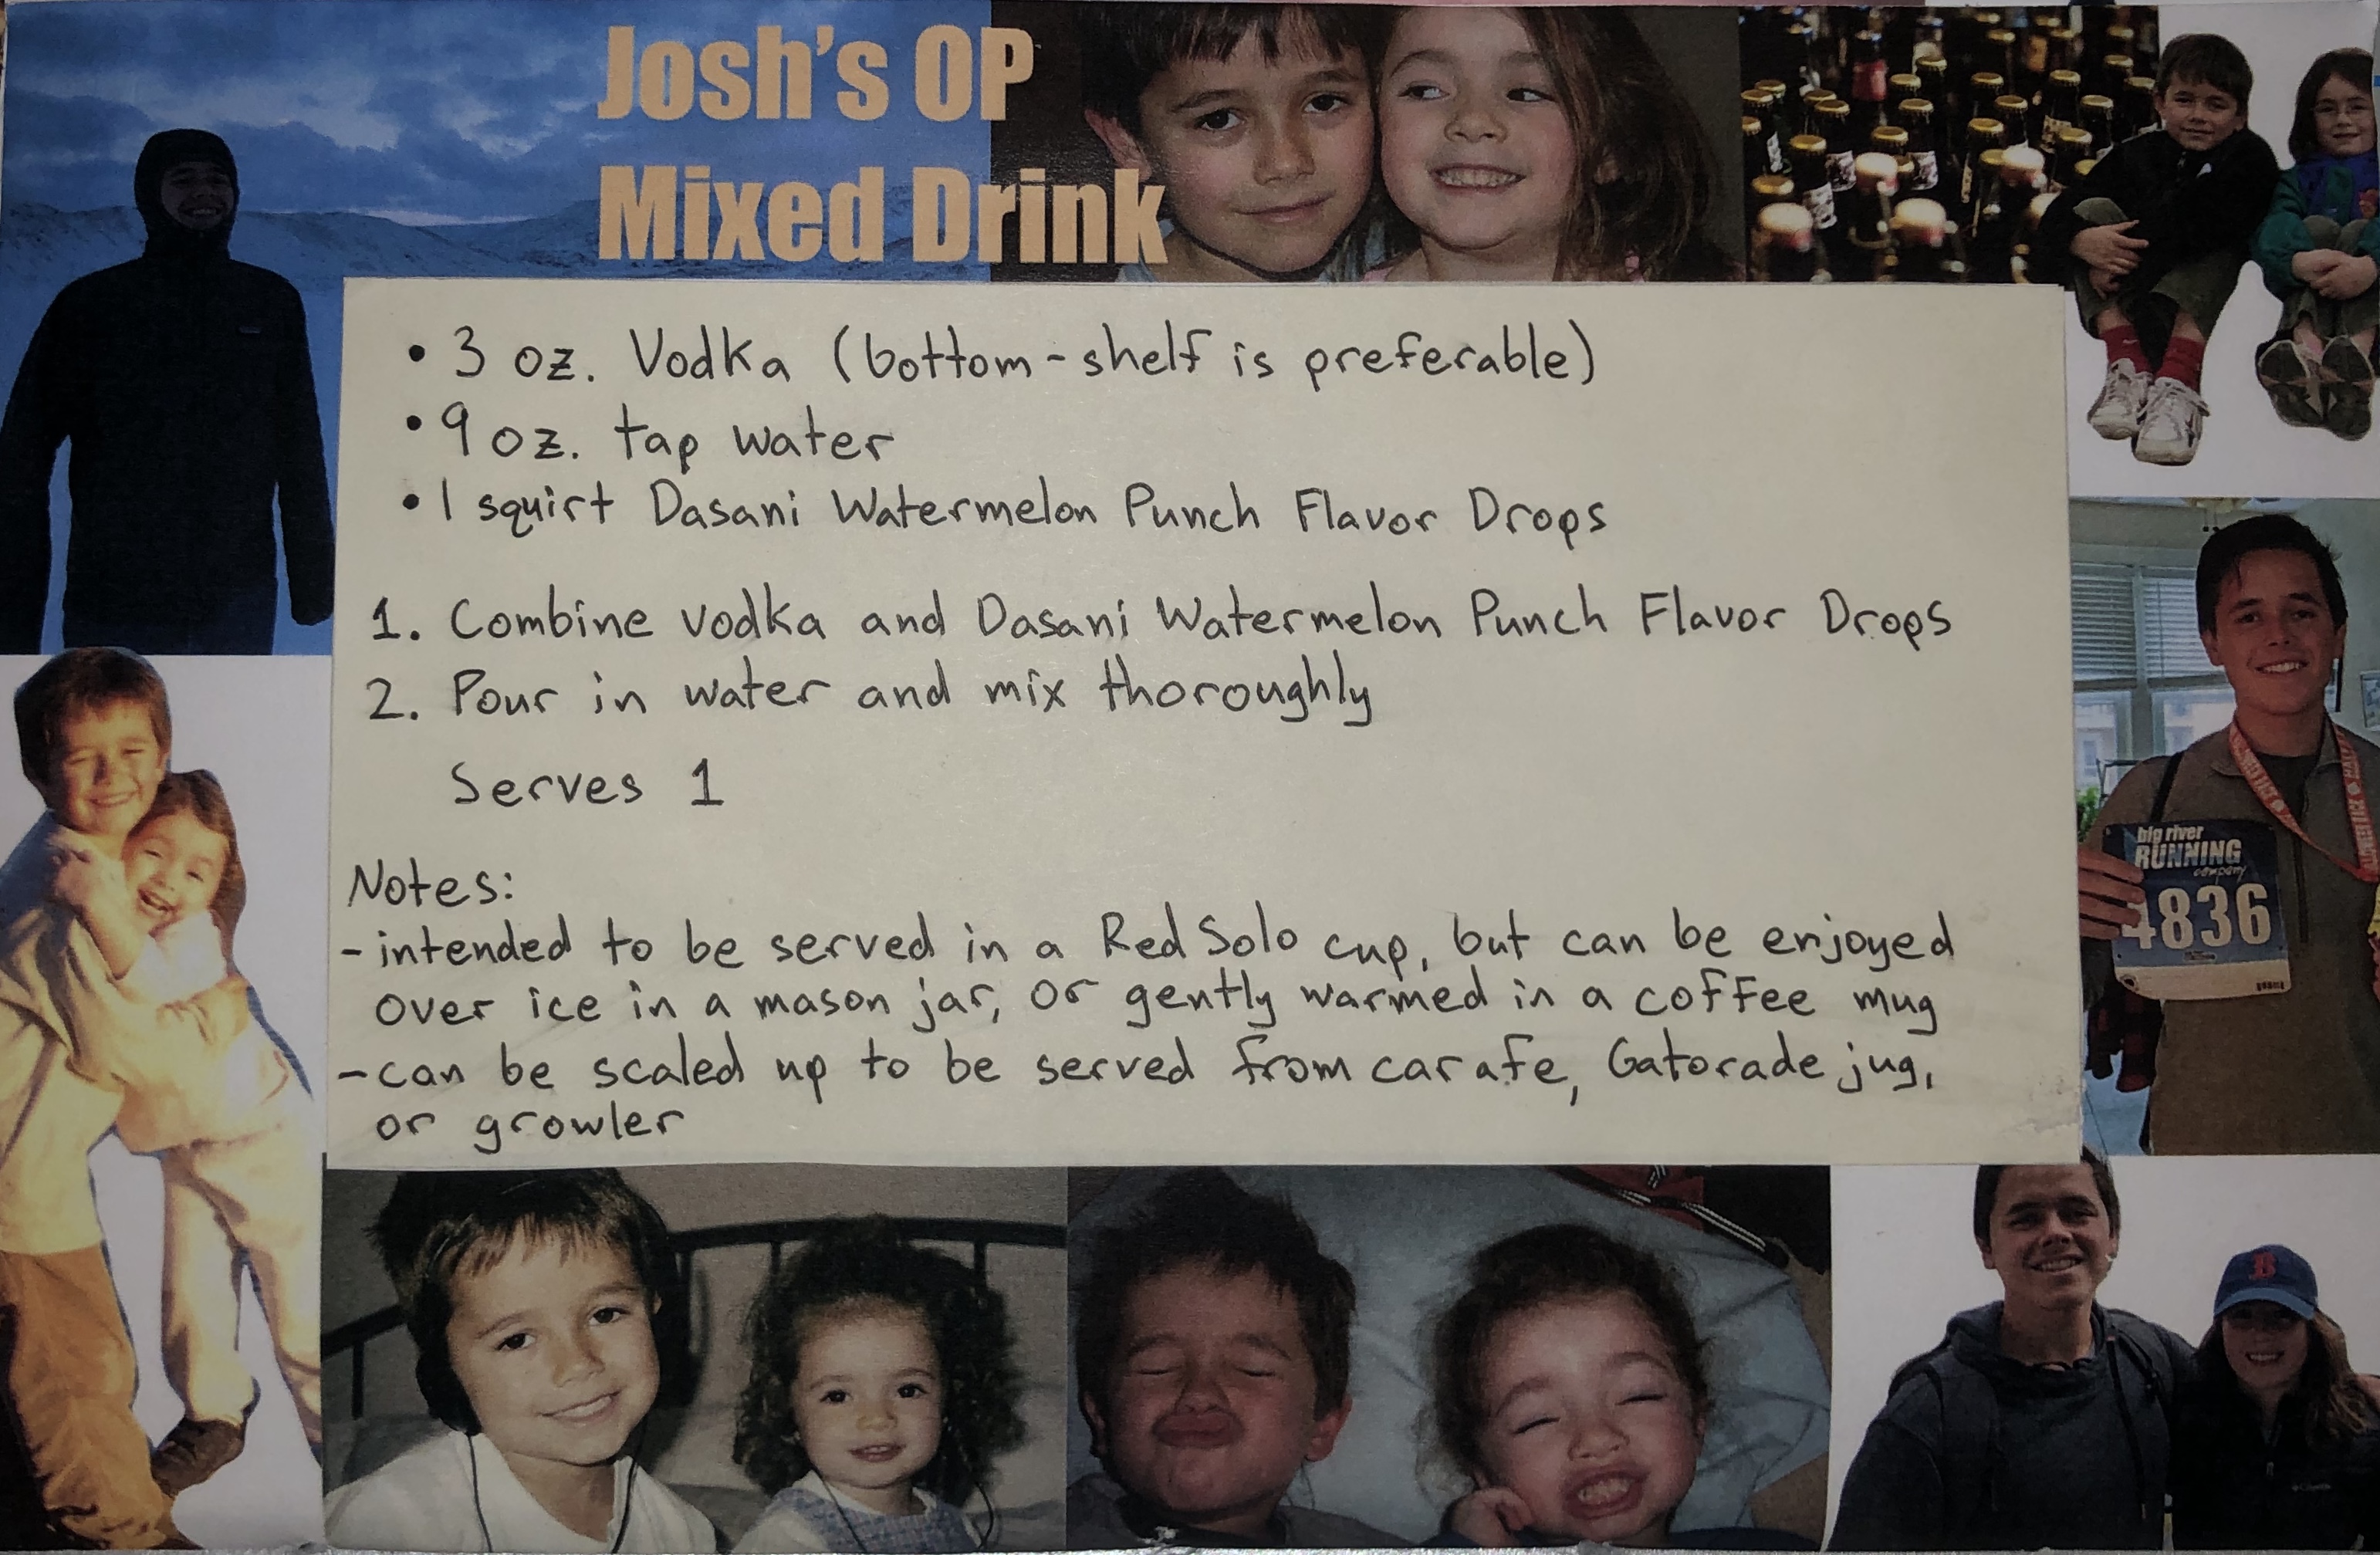 Josh's OP
Mixed Drink
• 3 oz. Vodka (bottom-shelf is preferable)
• 9 oz. tap water
• 1 squirt Dasani Watermelon Punch Flavor Drops
1. Combine vodka and Dasani Watermelon Punch Flavor Drops
2. Pour in water and mix thoroughly
Serves 1
Notes:
- intended to be served in a Red Solo cup, but can be enjoyed
over ice in a mason jar, or gently warmed in a coffee mug
- can be scaled up to be served from carafe, Gatorade jug,
or growler
big river
RUNNING
company
4836
B